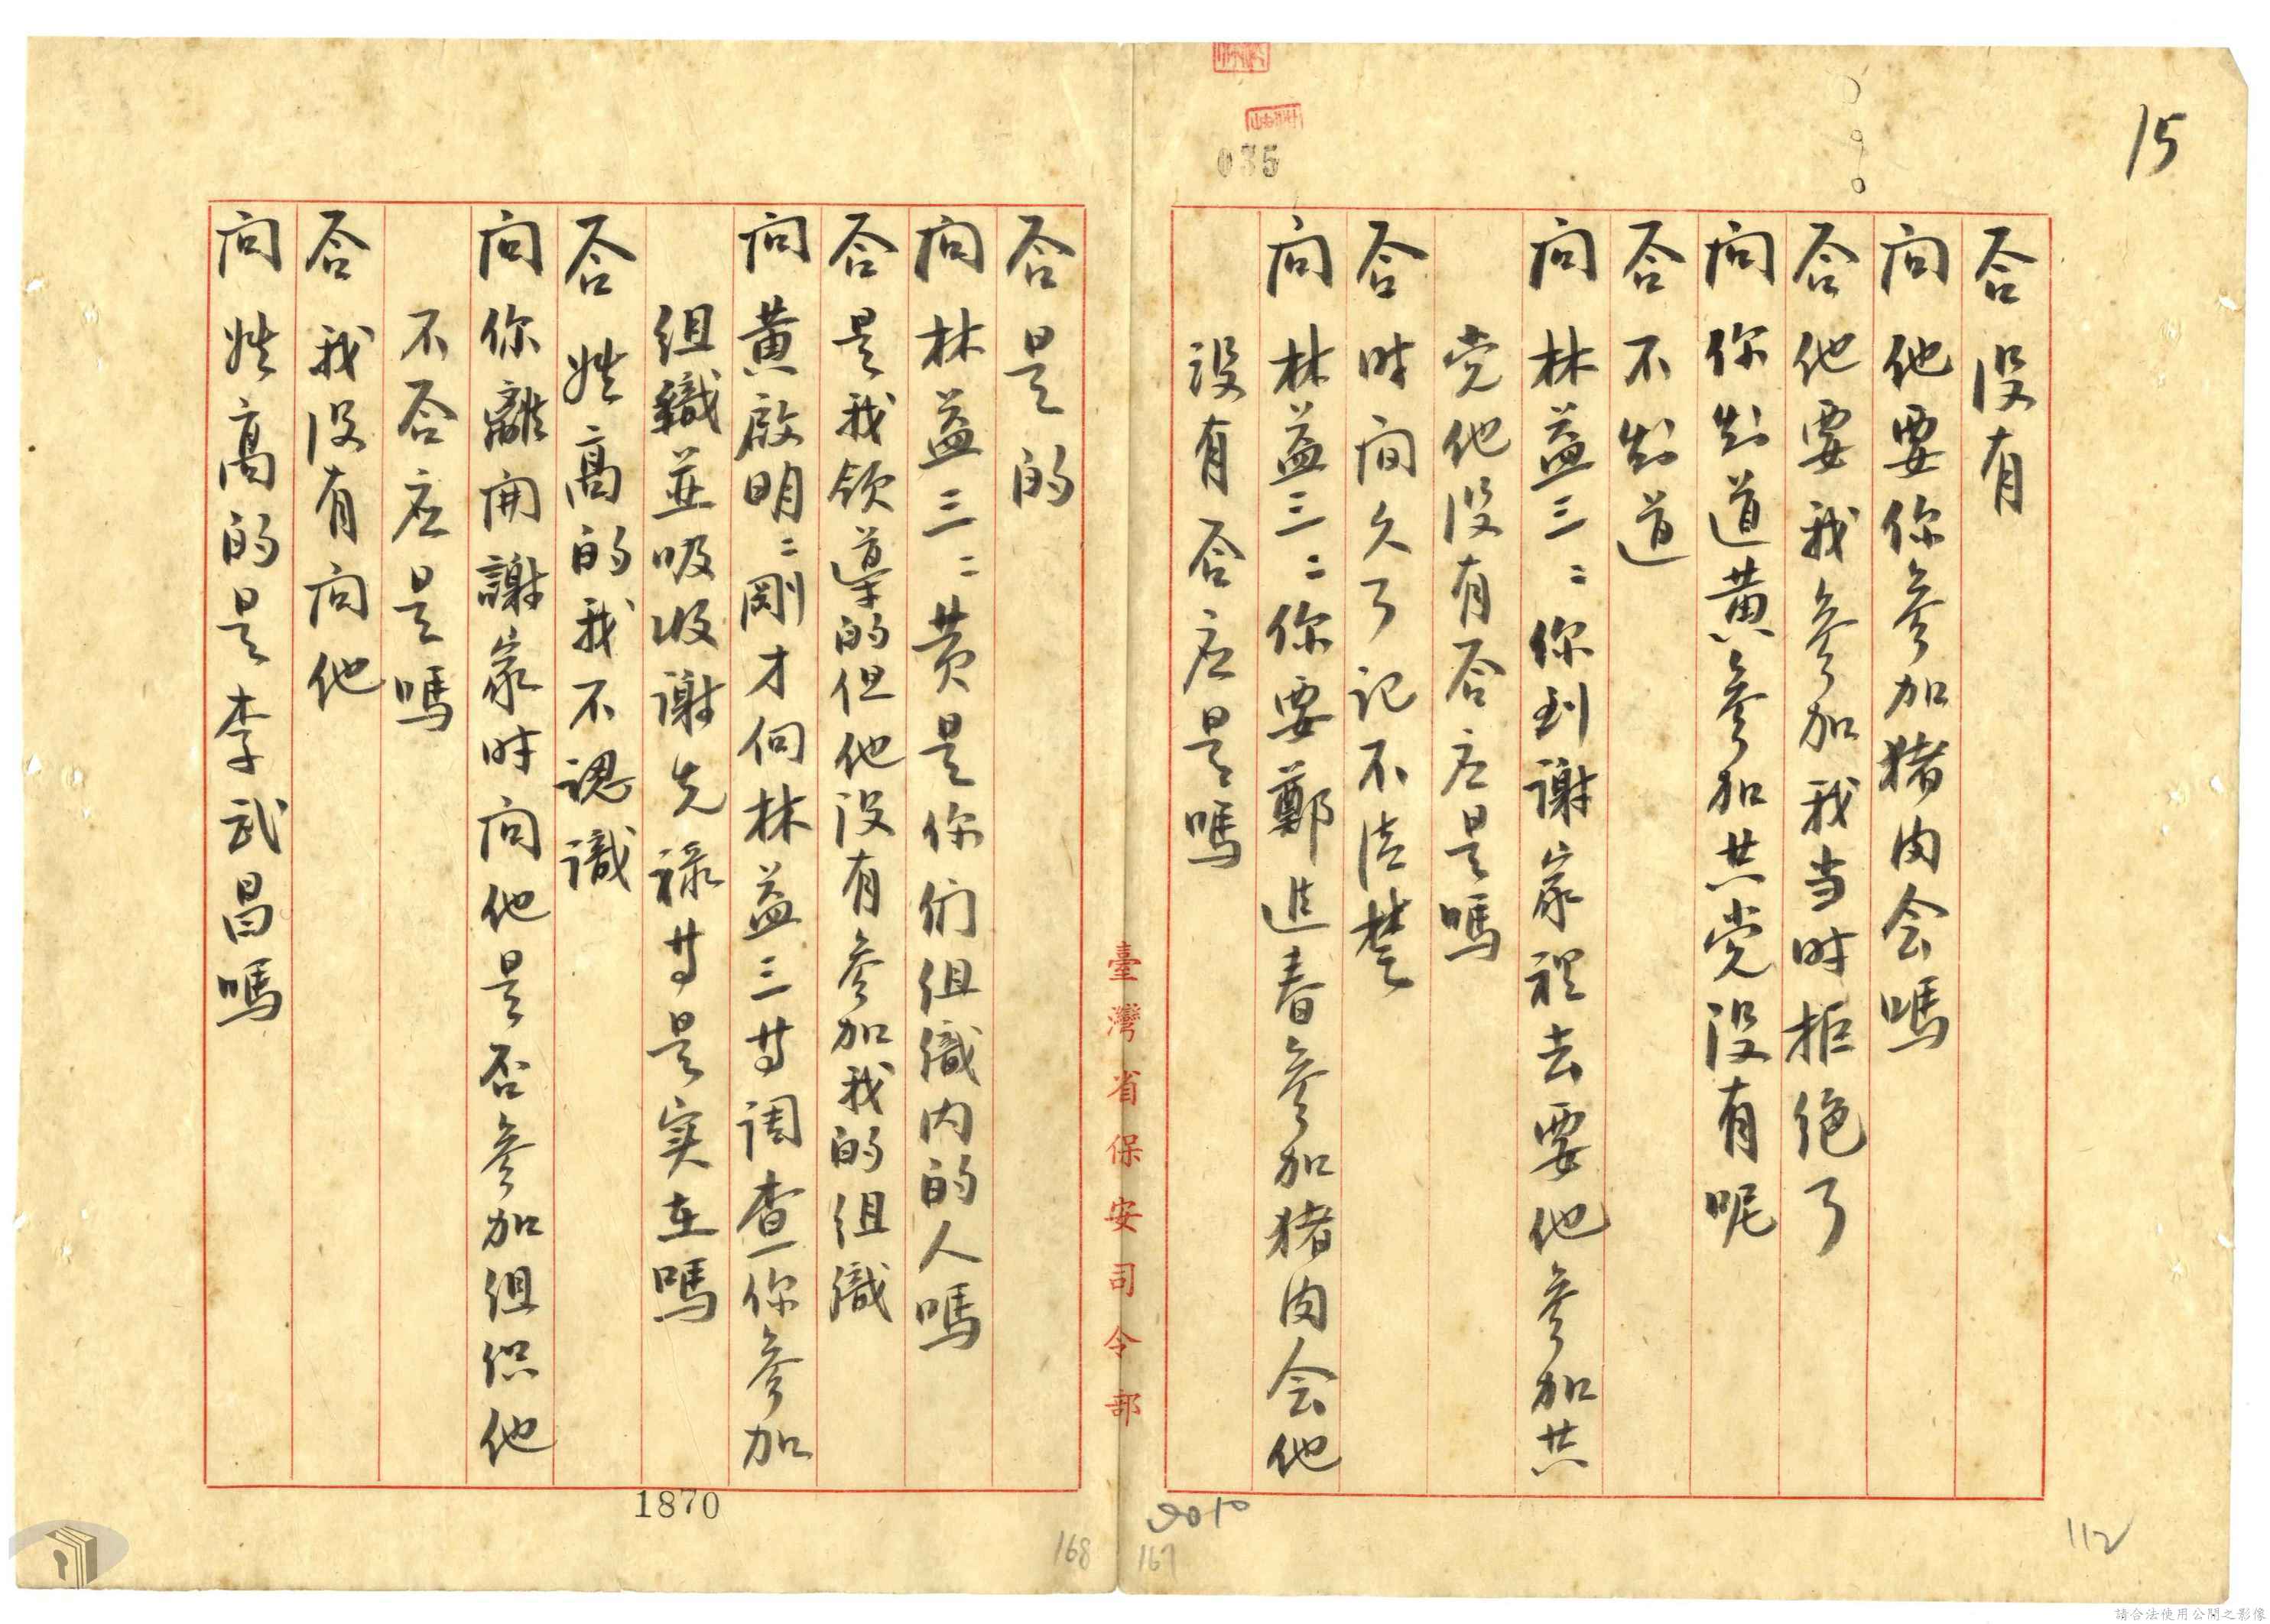 15
035
答 没有
问 他要你参加猪肉会嗎
答 他要我参加我当时拒绝了
问 你知道黄参加共党没有呢
答 不知道
问 林益三:你到謝家裡去要他参加共
党他没有答应是嗎
答 时间久了记不清楚
问 林益三:你要鄭進春参加猪肉会他
没有答应是嗎
臺灣省保安司令部
答 是的
问 林益三:黄是你们组織内的人嗎
答 是我领導的但他没有参加我的组織
问 黄啟明:剛才伺林益三等调查你参加
组織並吸收谢先禄等是实在嗎
答 姓高的我不認識
问 你離開謝家时问他是否参加组织他
不答应是嗎
答 我没有问他
问 姓高的是李武昌嗎
1870
168
167
112
請合法使用公開之影像